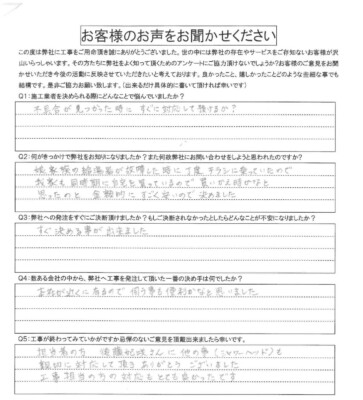 お客様のお声をお聞かせください
この度は弊社に工事をご用命頂き誠にありがとうございました。世の中には弊社の存在やサービスをご存知ないお客様が沢
山いらっしゃいます。その方たちに弊社をよく知って頂くためのアンケートにご協力頂けないでしょうか？お客様のご意見をお聞
かせいただき今後の活動に反映させていただきたいと考えております。良かったこと、嬉しかったことどのような些細な事でも
結構です。是非ご協力お願い致します。（出来るだけ具体的に書いて頂ければ幸いです）
Q1：施工業者を決められる際にどんなことで悩んでいましたか？
不具合が見つかった時に すぐに対応して頂けるか？
Q2：何がきっかけで弊社をお知りになりましたか？また何故弊社にお問い合わせをしようと思われたのですか？
給湯器が故障した時に丁度、チラシに乗っていたので
同時期に自宅を買っているので 買いかえ時かなと
思ったのと、金額的にすごく安いので決めました
Q3：弊社への発注をすぐにご決断頂けましたか？もしご決断されなかったとしたらどんなことが不安になりましたか？
すぐ決める事が出来ました
Q4：数ある会社の中から、弊社へ工事を発注して頂いた一番の決め手は何でしたか？
会社が近くに有るので 何事も便利かなと思いました
Q5：工事が終わってみていかがですか忌憚のないご意見を頂戴出来ましたら幸いです。
担当者の方 後藤 さんに他の事（シャワーヘッド）も
親切に対応して頂きありがとうございました
工事担当の方の対応もとても良かったです